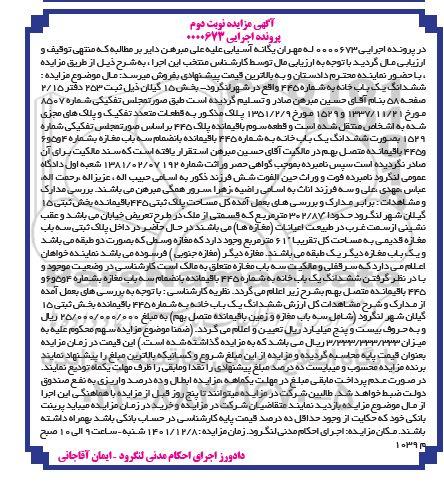 آگهی مزایده نوبت دوم
پرونده اجرایی ۰۰۰۰۶۷۳
در پرونده اجرایی ۰۰۰۰۶۷۳ له مهران یگانه آسیابی علیه علی مبرهن دایر بر مطالبه که منتهی توقیف و
ارزیابی مال گردید با توجه به ارزیابی مال توسط کارشناس منتخب این اجرا ، به شرح ذیل از طریق مزایده
، با حضور نماینده محترم دادستان و به بالاترین قیمت پیشنهادی بفروش میرسد: مال موضوع مزایده :
ششدانگ یک باب خانه به شماره ۴۴۵ واقع در شهر لنگرود- بخش ۱۵ گیلان ذیل ثبت ۲۵۳ دفتر ۲/۱۵
صفحه ۵۸ بنام آقای حسین مبرهن صادر و تسلیم گردیده است طبق صورتمجلس تفکیکی شماره ۸۵۰۷
مورخ ۱۳۳۷/۱۱/۲۱ و ۱۵۲۹ مورخ ۱۳۵۱/۲/۹ پلاک مذکور به قطعات متعدد تفکیک و پلاک های مجزی
شده به اشخاص منتقل شده است و قطعه سوم باقیمانده پلاک ۴۴۵ براساس صورتمجلس تفکیکی شماره
۱۵۲۹ بصورت ششدانگ یک باب خانه به شماره ۴۴۵ باقیمانده بانضمام سه باب مغازه بشماره ۴و۵و۶
و۴۴۵ باقیمانده متصل بهم در مالکیت آقای حسین مبرهن استقرار یافته است که سند مالکیت برای آن
صادر نگردیده است سپس نامبرده بموجب گواهی حصر وراثت شماره ۱۹۲ ۱۳۸۱/۰۲/۰۷ شعبه اول دادگاه
عمومی لنگرود نامبرده فوت و وراث حین الفوت شش فرزند ذکور به اسامی حبیب اله ، عزیزاله ،رحمت اله،
عباس ،مهدی ،علی و سه فرزند اناث به اسامی راضیه ،زهرا ،سرور همگی مبرهن می باشند. بررسی مدارک
و مشاهدات : برابر مدارک و بررسی های بعمل آمده کل مساحت پلاک ثبتی ۴۴۵باقیمانده بخش ثبتی ۱۵
گیلان شهر لنگرود حدودا ۳۰۲/۸۷ مترمربع که قسمتی از ملک در طرح تعریض خیابان می باشد و عقب
نشینی ازسمت غرب در طبیعت اعیانات (مغازه ها) می باشند در حال حاضر در داخل پلاک ثبتی سه باب
مغازه قدیمی به مساحت کل تقریبا ۶۱ مترمربع وجود دارد که مغازه وسطی که بصورت دو طبقه می باشد
و یک باب مغازه دیگر یک طبقه می باشند. مغازه دیگر (مغازه جنوبی ) فرسوده می باشد نماینده خواهان
اعلام می دارد که سرقفلی و مالکیت سه باب مغازه متعلق به مالک است کارشناسی در وضعیت موجود و
با در نظر گرفتن ششدانگ یک باب خانه به شماره ۴۴۵ باقیمانده بانضمام سه باب مغازه بشماره ۴و۵و۶و
۴۴۵ باقیمانده متصل بهم بشرح زیر اعلام می گردد. نظریه کارشناسی : با توجه به بررسی های بعمل آمده
از مدارک و شرح مشاهدات کل ارزش ششدانگ یک باب خانه به شماره ۴۴۵ باقیمانده بخش ثبتی ۱۵
گیلان شهر لنگرود (شامل سه باب مغازه و زمین باقیمانده متصل بهم) به مبلغ ۲۵/۰۰۰/۰۰۰/۰۰۰ ریال
و به حروف بیست و پنج میلیارد ریال تعیین و اعلام می گردد. (ضمنا موضوع مزایده سهم محکوم علیه به
میزان ۳/۳۳۳/۳۳۳/۳۳۳ ریال می باشد که به مزایده گذاشته شده است.) این قیمت در زمان مزایده
بعنوان قیمت پایه محاسبه گردیده و مزایده از این مبلغ شروع و کسانیکه بالاترین مبلغ را پیشنهاد نمایند
برنده مزایده محسوب و میبایست ده درصد مبلغ پیشنهادی را نقدا و مابقی را ظرف مهلت یکماه تودیع نمایند.
در صورت عدم پرداخت مابقی مبلغ در مهلت یکماهه ،مزایده ابطال و ده درصد واریزی به نفع صندوق
دولت ضبط خواهد شد. طالبین شرکت در مزایده میتوانند تا پنج روز قبل از مزایده با هماهنگی این اجرا
از مال موضوع مزایده بازدید نمایند متقاضیان شرکت در مزایده و خرید در زمان مزایده میباید پرینت
بانکی خود که حکایت از وجود حداقل ده درصد قیمت پایه کارشناسی در حساب بانکی باشد بهمراه داشته
باشند. مکان مزایده: اجرای احکام مدنی لنگرود. زمان مزایده : ۱۴۰۱/۱۲/۸ شنبه-ساعت ۹ الی ۱۰ صبح
م ۱۰۳۹
دادورز اجرای احکام مدنی لنگرود - ایمان آقاجانی